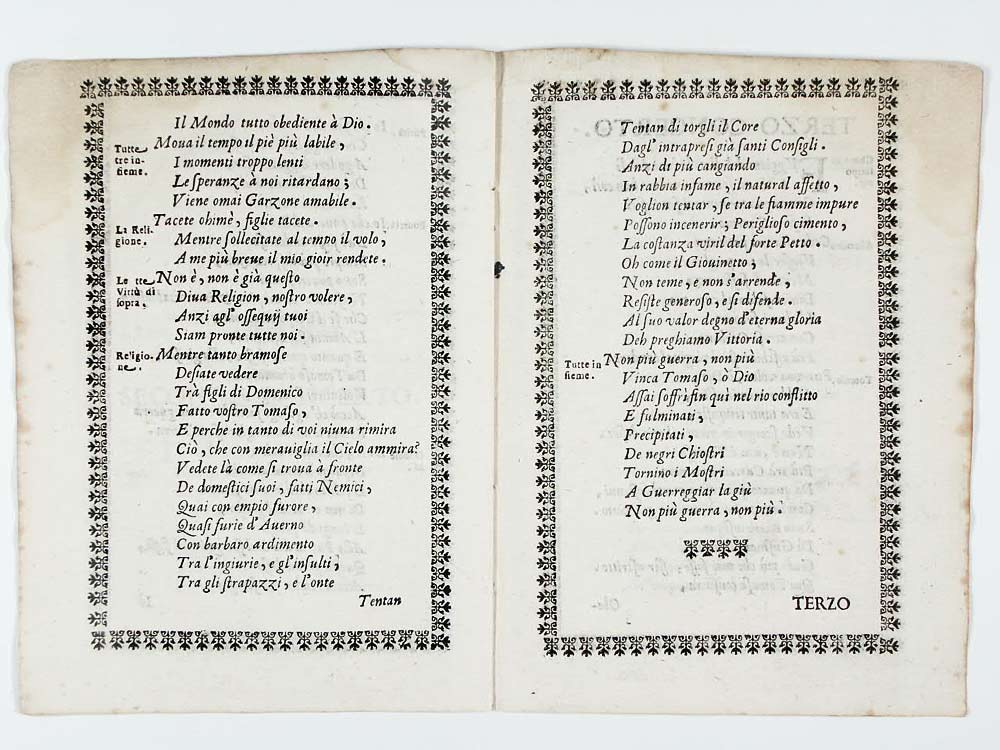 Il Mondo tutto obediente à Dio.
Tutte tre insieme. Moua il tempo il piè più labile,
I momenti troppo lenti
Le speranze à noi ritardano;
Viene omai Garzone amabile.
La Religione. Tacete ohimè, figlie tacete.
Mentre sollecitate al tempo il volo,
A me più breue il mio gioir rendete.
Le tte Virtù di sopra. Non è, non è già questo
Diua Religion, nostro volere,
Anzi agl' ossequij tuoi
Siam pronte tutte noi.
Religione. Mentre tanto bramose
Desiate vedere
Trà figli di Domenico
Fatto vostro Tomaso,
E perche in tanto di voi niuna rimira
Ciò, che con merauiglia il Cielo ammira?
Vedete là come si troua à fronte
De domestici suoi, fatti Nemici,
Quai con empio furore,
Quasi furie d'Auerno
Con barbaro ardimento
Tra l'ingiurie, e gl'insulti,
Tra gli strapazzi, e l'onte
Tentan
Tentan di torgli il Core
Dagl' intrapresi già santi Consigli.
Anzi di più cangiando
In rabbia infame, il natural affetto,
Voglion tentar, se tra le fiamme impure
Possono incenerir; Periglioso cimento,
La costanza viril del forte Petto.
Oh come il Giouinetto;
Non teme, e non s'arrende,
Resiste generoso, e si difende.
Al suo valor degno d'eterna gloria
Deh preghiamo Vittoria.
Tutte insieme. Non più guerra, non più
Vinca Tomaso, ò Dio
Assai soffrì fin quì nel rio conflitto
E fulminati,
Precipitati,
De negri Chiostri
Tornino i Mostri
A Guerreggiar la giù
Non più guerra, non più.
TERZO